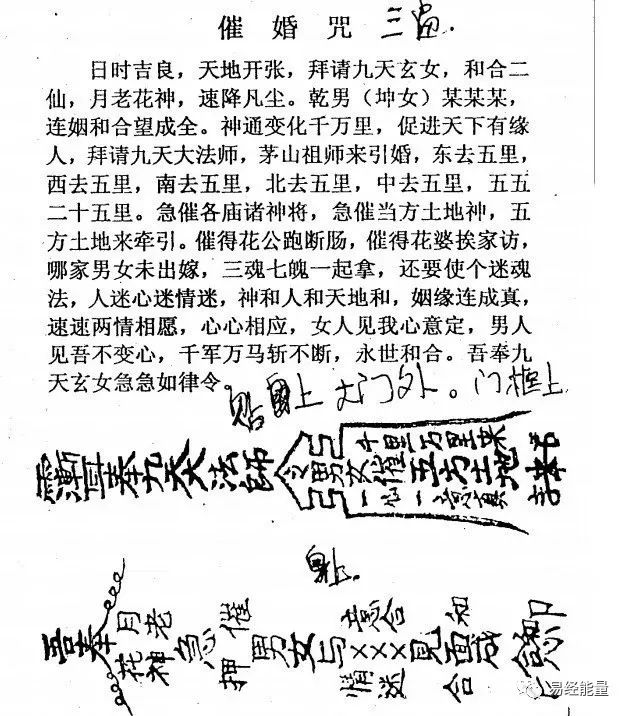 催婚咒 三道.
日时吉良，天地开张，拜请九天玄女，和合二
仙，月老花神，速降凡尘。乾男（坤女）某某某，
连姻和合望成全。神通变化千万里，促进天下有缘
人，拜请九天大法师，茅山祖师来引婚，东去五里，
西去五里，南去五里，北去五里，中去五里，五五
二十五里。急催各庙诸神将，急催当方土地神，五
方土地来牵引。催得花公跑断肠，催得花婆挨家访，
哪家男女未出嫁，三魂七魄一起拿，还要使个迷魂
法，人迷心迷情迷，神和人和天地和，姻缘连成真，
速速两情相愿，心心相应，女人见我心意定，男人
见吾不变心，千军万马斩不断，永世和合。吾奉九
天玄女急急如律令。
贴 上 大门外。门框上
奉九天大法师
男女催
千里万里来
五方土地
一心一意
吾奉
月老
花神
急
催
押
男女与×××见面成
意合
情迷
和
合
易经能量